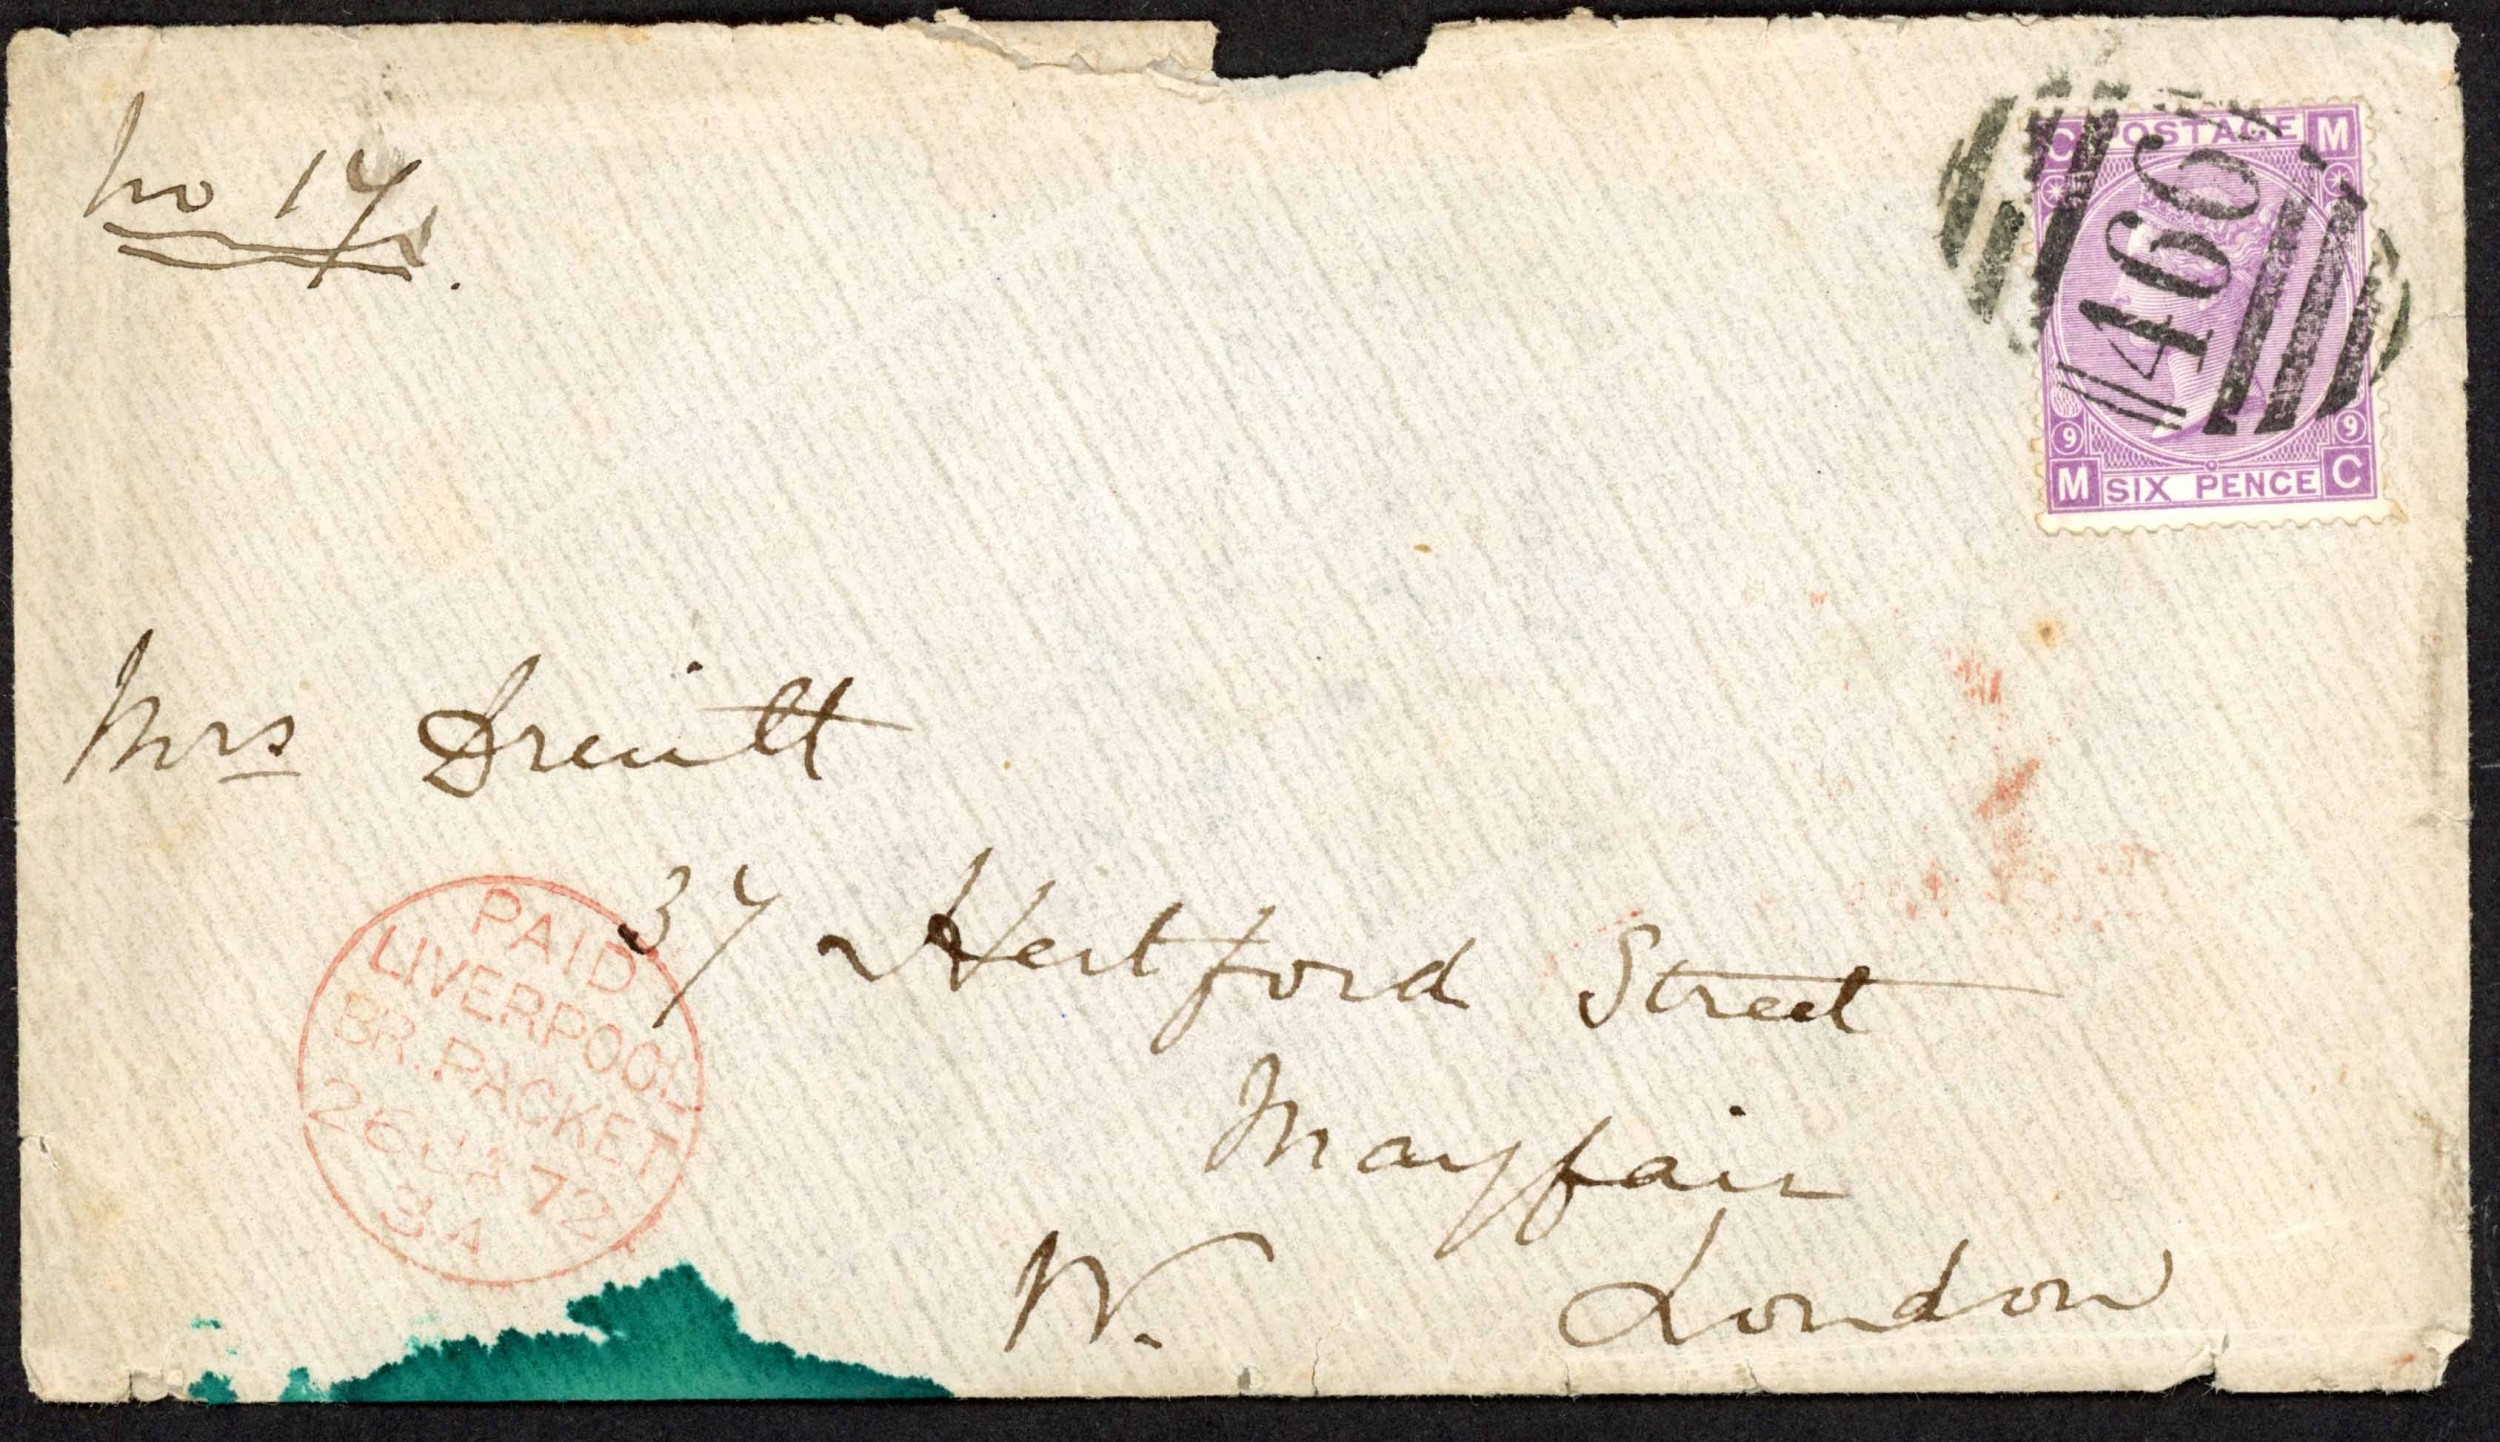 No 17.
C POSTAGE M
466
9 9
M SIX PENCE C
Mrs Drewitt
37 Hertford Street
Mayfair
W. London
PAID
LIVERPOOL
BR. PACKET
26 JA 72
3A